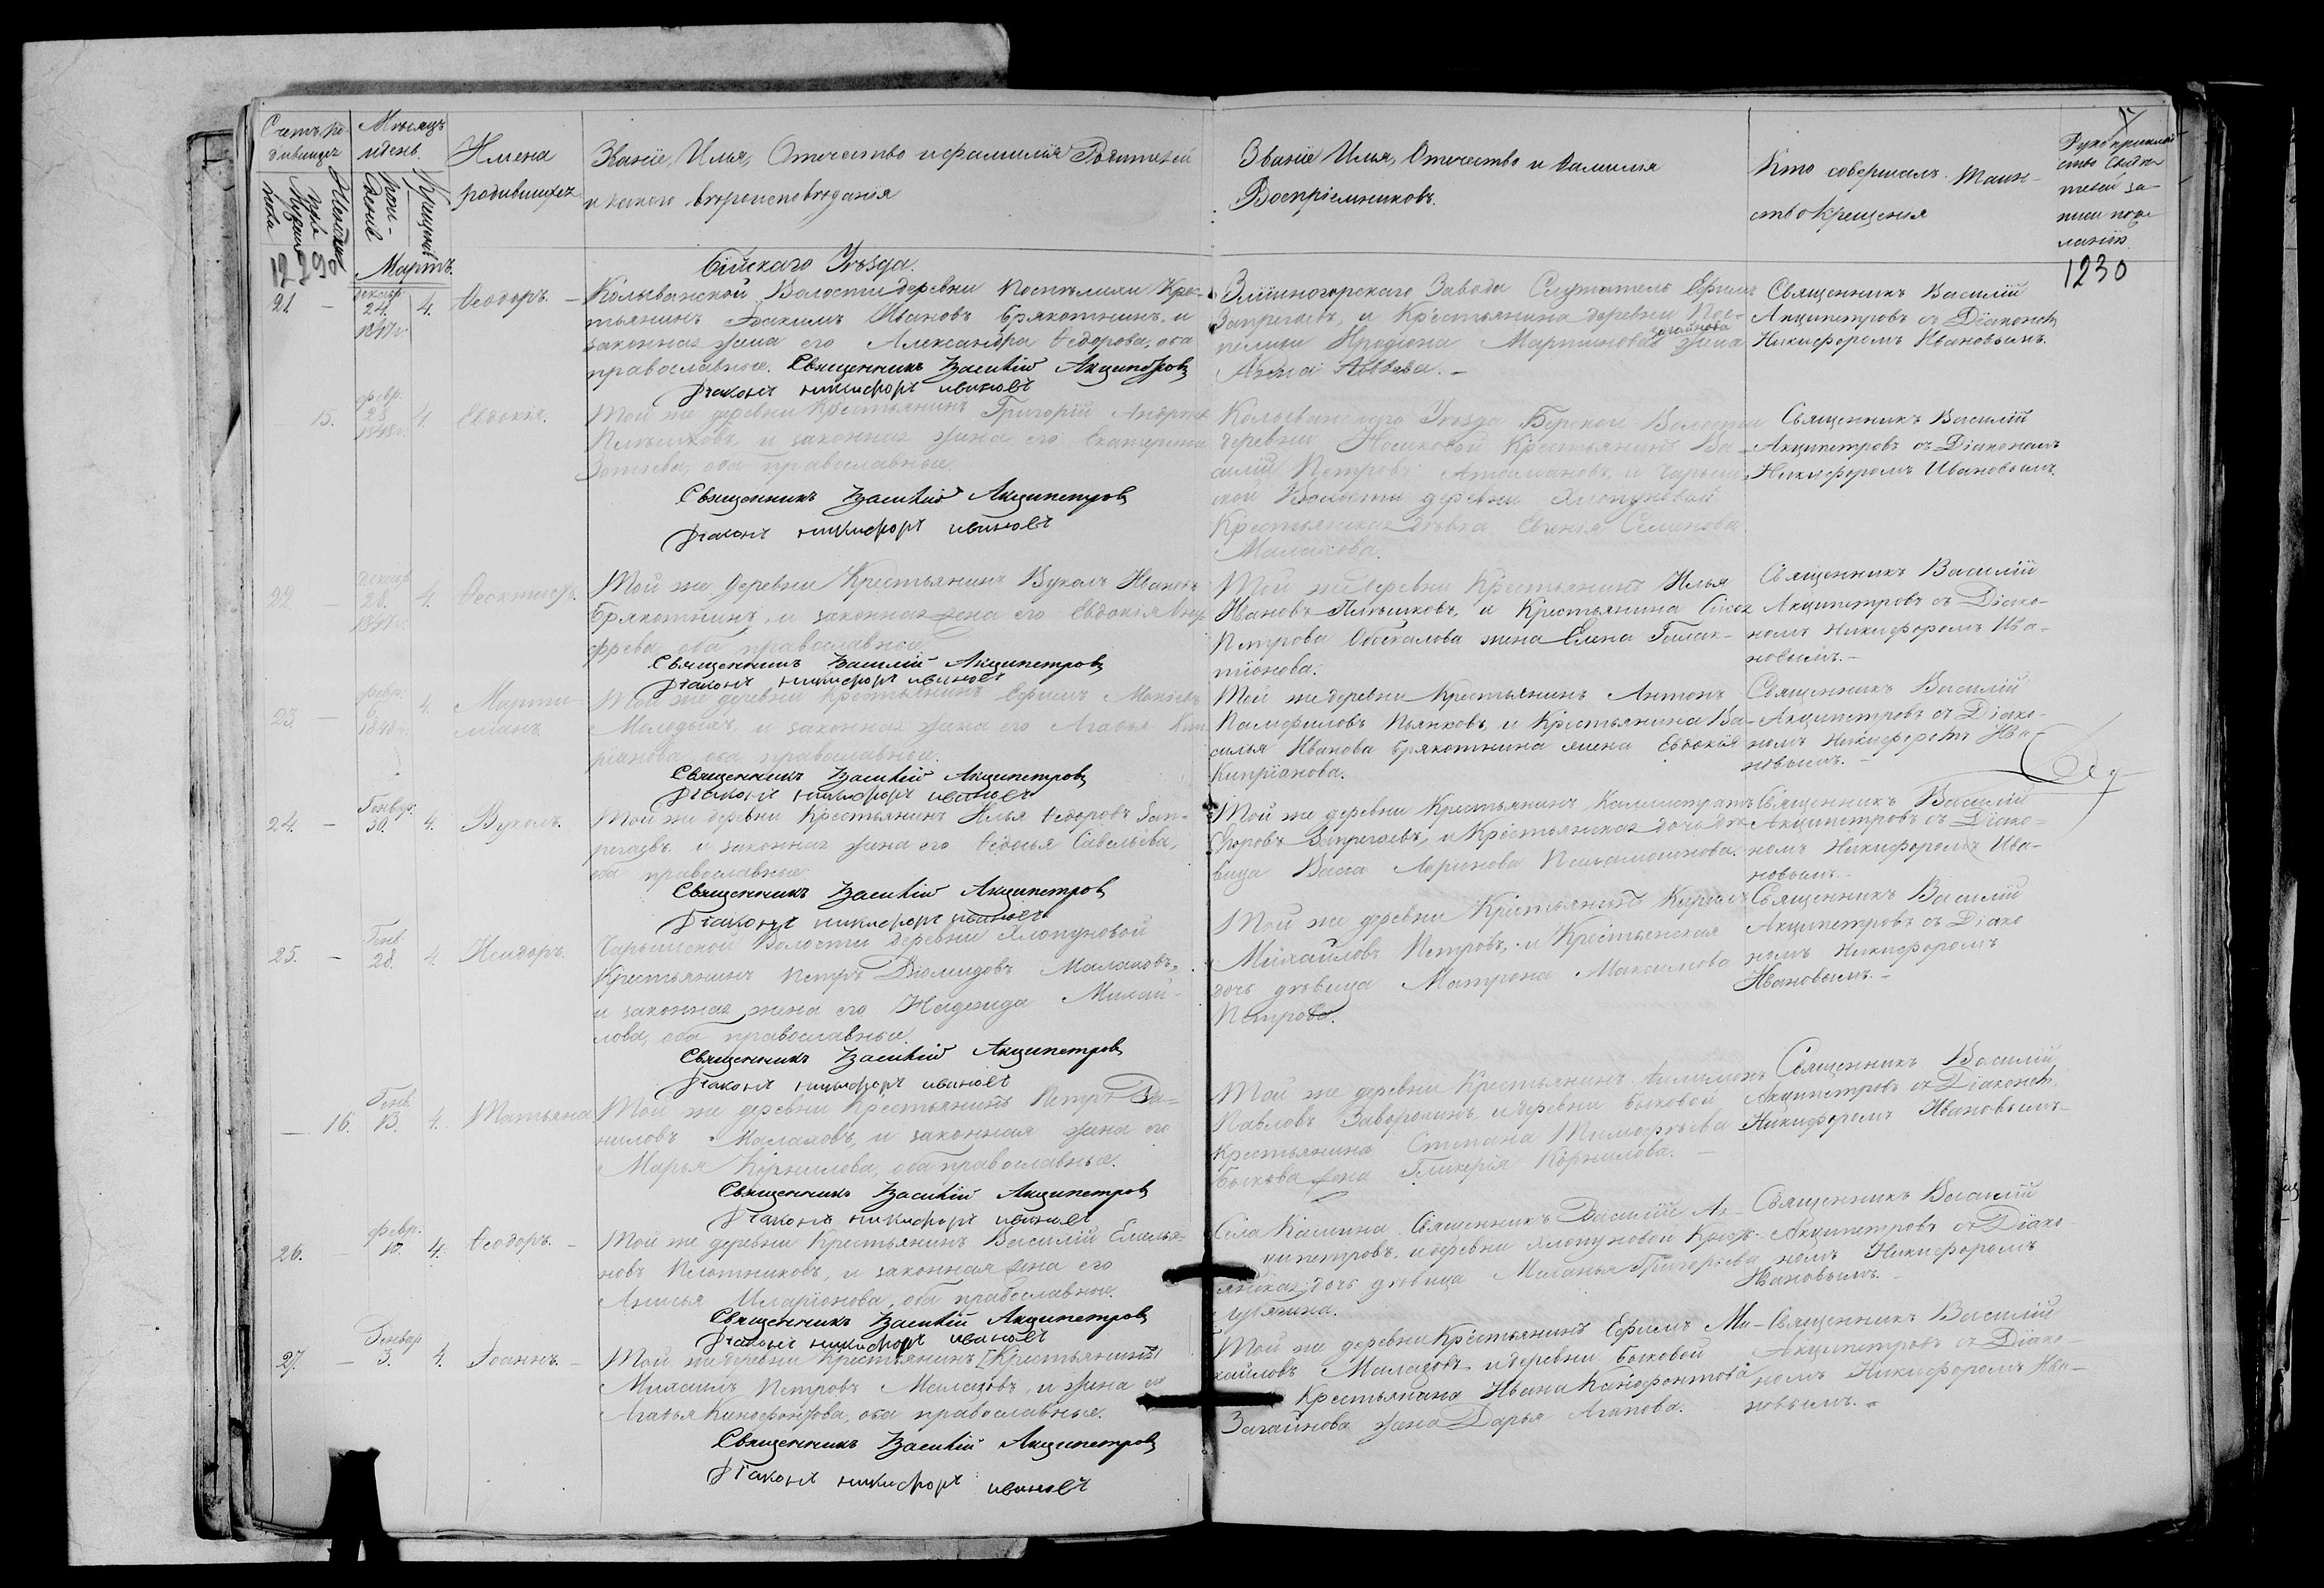 Счетъ ро-
дившихся
Мужеска
пола
Женска
Мѣсяцъ
и день.
Рож-
деніе
Крещеніе
Имена
родившихся
Званіе, Имя, Отечество и фамилія Родителей
и какого вѣроисповѣданія
Званіе Имя, Отечество и Фамилія
Воспріемниковъ.
Кто совершалъ Таин-
ство Крещенія
Рукоприклад
ство Свидѣ-
телей за-
писи по же-
ланію
1229 об
1230
Мартъ.
Бійскаго Уѣзда.
21 — Декабр. 24. 1847 г. 4. Ѳеодоръ. —
Колыванской Волости деревни Поспѣлихи Крес-
тьянинъ Іоакимъ Ивановъ Брякотнинъ, и
законная жена его Александра Ѳедорова, оба
православные. Священникъ Василій Акципетровъ
Діаконъ Никифоръ Ивановъ
Змѣиногорскаго Завода Служитель Ефимъ
Запрегаевъ, и Крестьянина деревни Пос-
пелихи Иродіона Мартинова Загайнова жена
Авдѣева. —
Священникъ Василій
Акципетровъ съ Діакономъ
Никифоромъ Ивановымъ.
15. февр. 28 1848 г. 4. Евдокія.
Той же деревни Крестьянинъ Григорій Андреевъ
и законная жена его Екатерина
Зотьева, оба православные
Священникъ Василій Акципетровъ
Діаконъ Никифоръ Ивановъ
Колыванскаго Уѣзда Бѣрской Волости
деревни Носиковой Крестьянинъ Ва-
силій Петровъ Атамановъ, и Чарыш-
ской Волости деревни Хлопуновой
Крестьянская дѣвка Евгенія Семенова
Малахова.
Священникъ Василій
Акципетровъ съ Діакономъ
Никифоромъ Ивановымъ.
22 — Декабр 28. 1847 г. 4. Ѳеоктистъ.
Той же деревни Крестьянинъ Вуколъ Ивановъ
Брякотнинъ, и законная жена его Евдокія
оба православные
Священникъ Василій Акципетровъ
Діаконъ Никифоръ Ивановъ
Той же деревни Крестьянинъ Илья
Ивановъ и Крестьянина
Петрова жена Елена Галак-
тіонова.
Священникъ Василій
Акципетровъ съ Діако-
номъ Никифоромъ Ива-
новымъ. —
23 — февр. 6 1848 г. 4. Марти-
міанъ
Той же деревни Крестьянинъ Ефимъ
Молодыхъ, и законная жена его Агафья Кип-
ріанова, оба православные.
Священникъ Василій Акципетровъ
Діаконъ Никифоръ Ивановъ
Той же деревни Крестьянинъ Антонъ
Памфиловъ Пьянковъ, и Крестьянина Ва-
силья Иванова Брякотнина жена Евдокія
Кипріанова.
Священникъ Василій
Акципетровъ съ Діако-
номъ Никифоромъ Ива-
новымъ. —
24. — Генвар: 30. 4. Вуколъ.
Той же деревни Крестьянинъ Илья Ѳедоровъ Зап-
регаевъ и законная жена его Ѳедосья Савельева,
оба православные.
Священникъ Василій Акципетровъ
Діаконъ Никифоръ Ивановъ
Той же деревни Крестьянинъ Калистратъ
Егоровъ Запрегаевъ, и Крестьянская дочь дѣ-
вица Васса Ларіонова
Священникъ Василій
Акципетровъ съ Діако-
номъ Никифоромъ Ива-
новымъ.
25. — Генв 28. 4. Исидоръ.
Чарышской Волости деревни Хлопуновой
Крестьянинъ Петръ Діомидовъ Малаховъ,
и законная жена его Надежда Михай-
лова, оба православные.
Священникъ Василій Акципетровъ
Діаконъ Никифоръ Ивановъ
Той же деревни Крестьянинъ Кирилъ
Михайловъ Петровъ, и Крестьянская
дочь дѣвица Матрона Максимова
Петрова.
Священникъ Василій
Акципетровъ съ Діако
номъ Никифоромъ
Ивановымъ. —
— 16. Генв. 13. 4. Татьяна
Той же деревни Крестьянинъ Петръ Да-
ниловъ Малаховъ, и законная жена его
Марья Корнилова, оба православные.
Священникъ Василій Акципетровъ
Діаконъ Никифоръ Ивановъ
Той же деревни Крестьянинъ Филимонъ
Павловъ Заворохинъ, и деревни Быковой
Крестьянина Степана Тимофѣева
Быкова жена Гликерія Корнилова. —
Священникъ Василій
Акципетровъ съ Діакономъ
Никифоромъ Ивановымъ —
26. — февр: 10. 4. Ѳеодоръ. —
Той же деревни Крестьянинъ Василій Емелья-
новъ Плотниковъ, и законная жена его
Анисья Иларіонова, оба православные.
Священникъ Василій Акципетровъ
Діаконъ Никифоръ Ивановъ
Села Кашина Священникъ Василій Ак-
ципетровъ, и деревни Хлопуновой Кресть-
янская дочь дѣвица Маланья Григорьева
Священникъ Василій
Акципетровъ съ Діако
номъ Никифоромъ
Ивановымъ. —
27. — Генвар 3. 4. Іоаннъ. —
Той же деревни Крестьянинъ [Крестьянинъ]
Михаилъ Петровъ Малаховъ, и жена его
Агафья Кинофонтова, оба православные.
Священникъ Василій Акципетровъ
Діаконъ Никифоръ Ивановъ
Той же деревни Крестьянинъ Ефимъ Ми-
хайловъ Малаховъ и деревни Быковой
Крестьянина Ивана Канофонтова
Загайнова жена Дарья Агапова.
Священникъ Василій
Акципетровъ съ Діако-
номъ Никифоромъ Ива-
новымъ. —